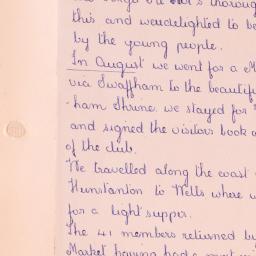 this and were delighted to be
by the young people.
In August we went for a
via Swaffham to the beautif
-ham Shrine. we stayed for
and signed the visitors book
of the club.
We travelled along the coast
Hunstanton to Wells where
for a light supper.
The 41 members returned by
Market having had a